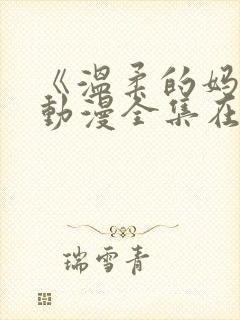 《温柔的妈
动漫全集在
瑞雪青